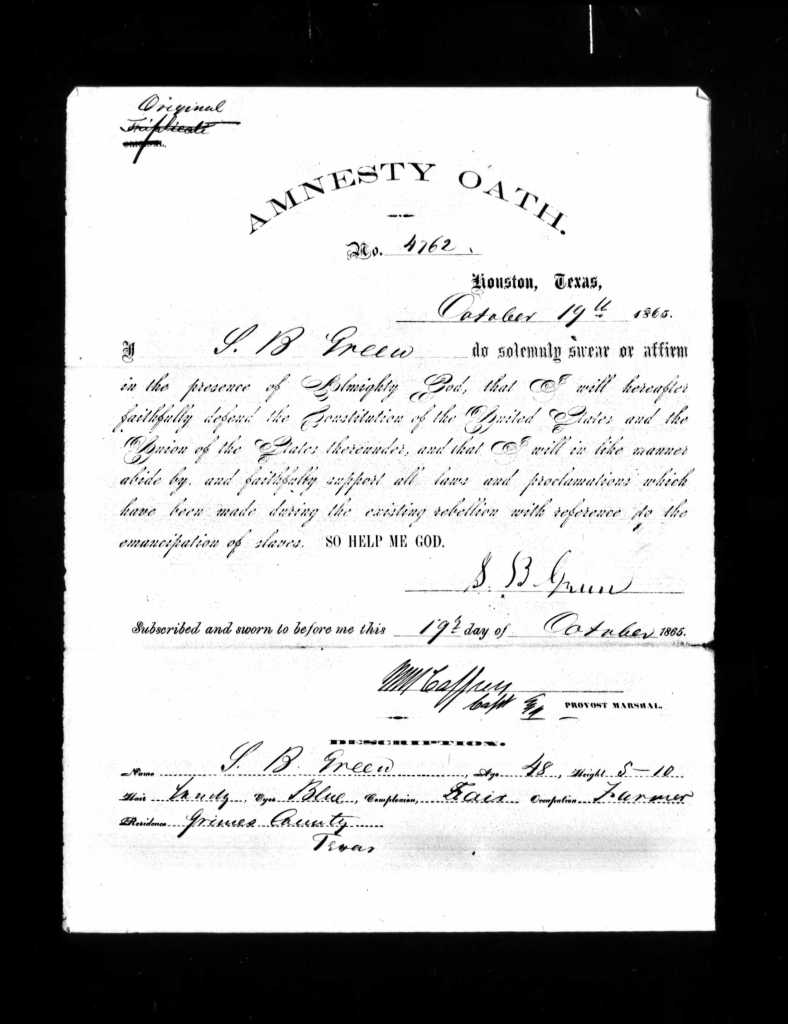 Original
Triplicate
AMNESTY OATH.
No. 4762.
Houston, Texas,
October 19th 1865.
I S. B. Green do solemnly swear or affirm
in the presence of Almighty God, that I will hereafter
faithfully defend the Constitution of the United States and the
Union of the States thereunder, and that I will in like manner
abide by, and faithfully support all laws and proclamations which
have been made during the existing rebellion with reference to the
emancipation of slaves. SO HELP ME GOD.
S. B. Green
Subscribed and sworn to before me this 19th day of October 1865.
Capt PROVOST MARSHAL.
DESCRIPTION.
Name S. B. Green, Age 48, Height 5-10
Hair Sandy, Eyes Blue, Complexion, Fair Occupation Farmer
Residence Grimes County
Texas